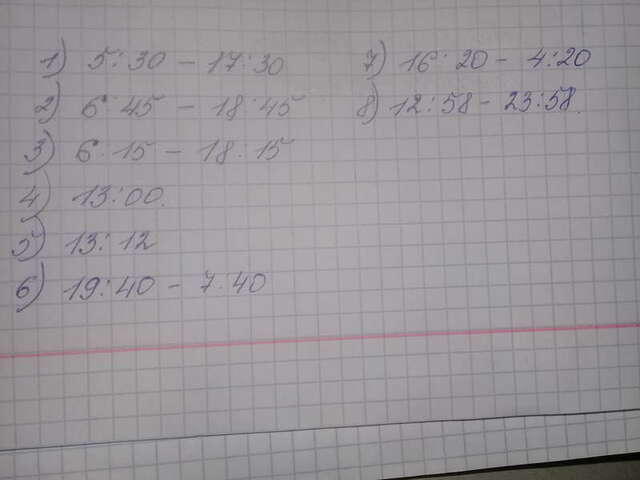 1) 5:30 - 17:30
2) 6:45 - 18:45
3) 6:15 - 18:15
4) 13:00.
5) 13:12
6) 19:40 - 7:40
7) 16:20 - 4:20
8) 12:58 - 23:58.